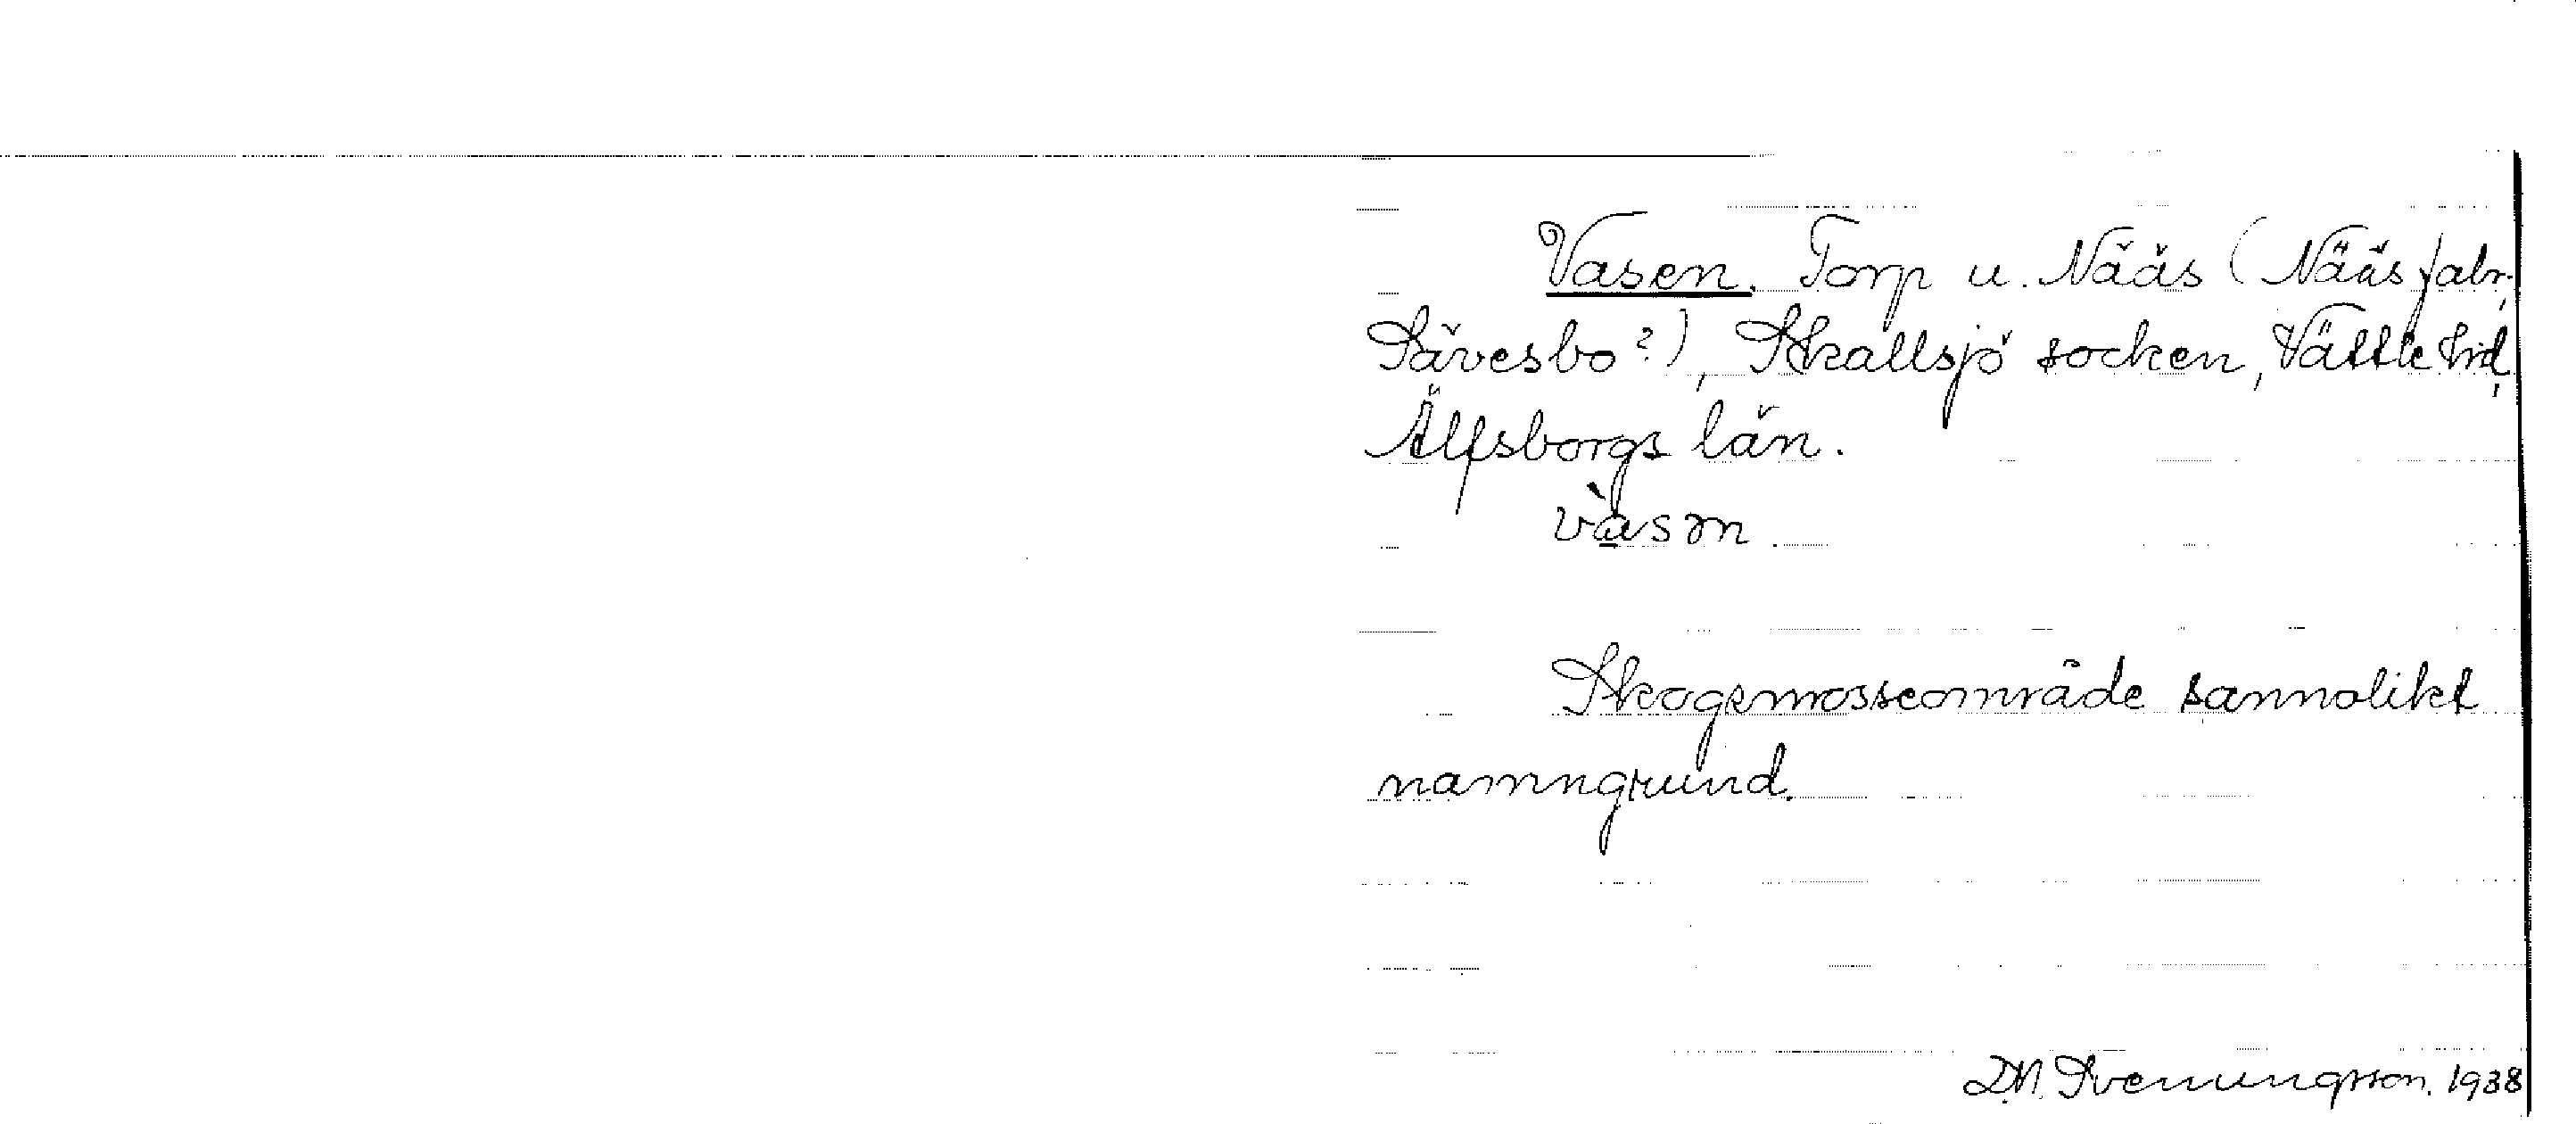 Vasen. Torp u. Nääs (Nääs fabr.,
Sävesbo?), Skallsjö socken, Vättle hd,
Älfsborgs län.
vàsɷn
Skogsmosseområde sannolikt
namngrund.
D.M. Svenungsson. 1938